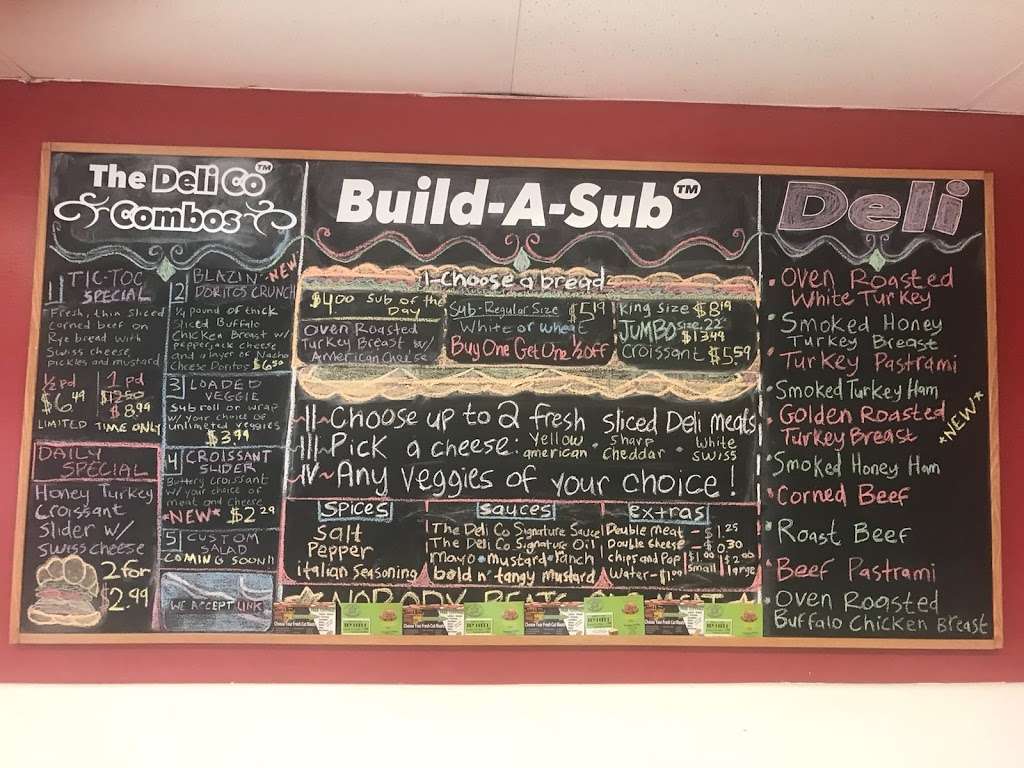 The Deli Co™
Combos
1 TIC-TOC
SPECIAL
Fresh, thin sliced
corned beef on
Rye bread with
Swiss cheese,
pickles and mustard
½ pd
$6.49
1 pd
$12.50
$8.99
LIMITED TIME ONLY
DAILY
SPECIAL
Honey Turkey
Croissant
Slider w/
Swiss cheese
2 for
$2.99
2 BLAZIN' NEW
DORITOS CRUNCH
¼ pound of thick
Sliced Buffalo
Chicken Breast w/
Pepperjack cheese
and a layer of Nacho
Cheese Doritos $6.50
3 LOADED
VEGGIE
Sub roll or wrap
w/ your choice of
unlimited veggies
$3.99
4 CROISSANT
SLIDER
Buttery croissant
w/ your choice of
meat and cheese
*NEW* $2.29
5 CUSTOM
SALAD
COMING SOON!!
WE ACCEPT LINK
Build-A-Sub™
I-choose a bread
$4.00 Sub of the
Day
Oven Roasted
Turkey Breast w/
American Cheese
Sub-Regular Size $5.19
White or wheat
Buy One Get One ½ off
King Size $8.19
JUMBO size 22" $13.49
Croissant $5.59
II~Choose up to 2 fresh sliced Deli meats
III~Pick a cheese: Yellow american • Sharp cheddar • White swiss
IV~Any Veggies of your choice!
Spices
Salt
Pepper
italian Seasoning
Sauces
The Deli Co Signature Sauce
The Deli Co Signature Oil
Mayo • mustard • ranch
bold n' tangy mustard
extras
Double meat - $1.25
Double cheese - $0.30
chips and Pop $1.00 small $2.00 large
Water - $1.00
NOBODY BEATS
Deli
• Oven Roasted
White Turkey
• Smoked Honey
Turkey Breast
• Turkey Pastrami
• Smoked Turkey Ham
• Golden Roasted
Turkey Breast
*NEW*
• Smoked Honey Ham
• Corned Beef
• Roast Beef
• Beef Pastrami
• Oven Roasted
Buffalo Chicken Breast